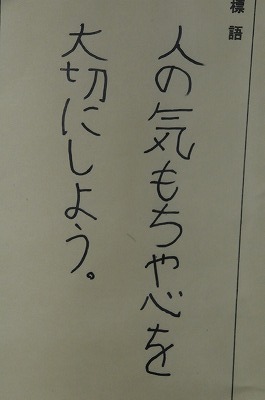 標語
人の気もちや心を
大切にしよう。